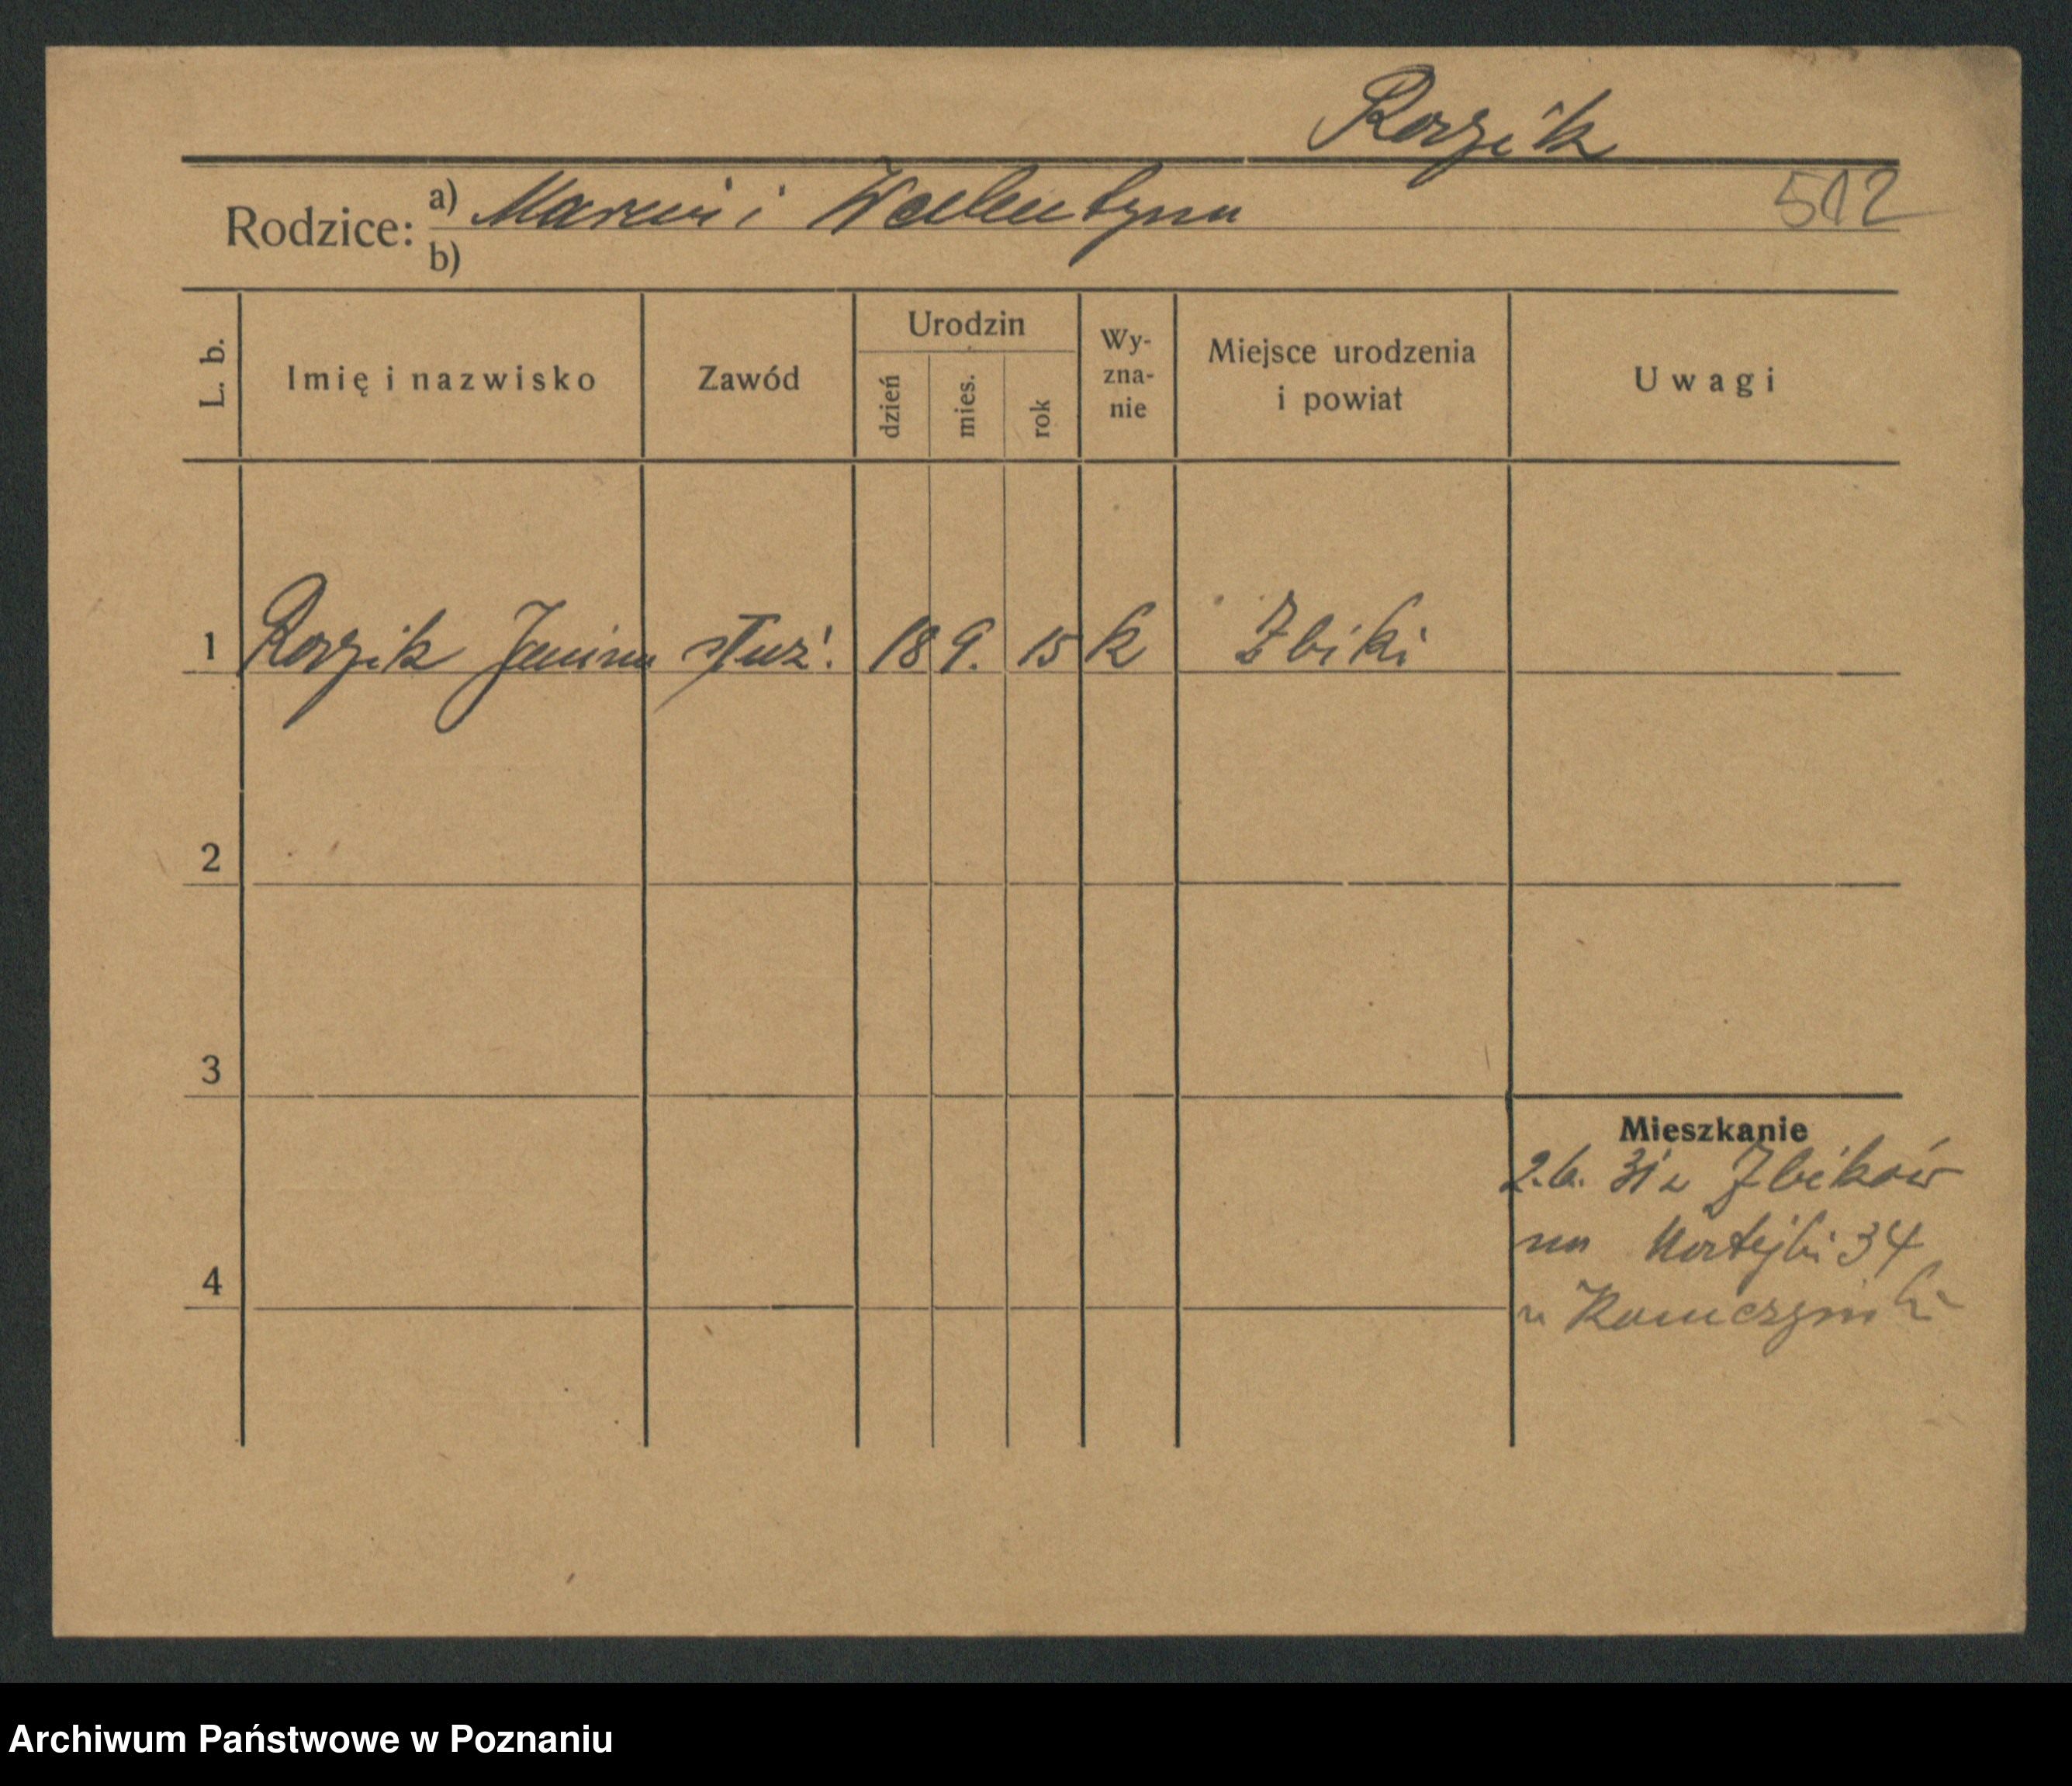 Rorzik
Rodzice: a) Marcin i Walentyna
512
b)
L. b.
Imię i nazwisko
Zawód
Urodzin
dzień
mies.
rok
Wy-
zna-
nie
Miejsce urodzenia
i powiat
Uwagi
1 Rorzik Janina służ. 18 9. 15 k Zbiki
2
3
Mieszkanie
2.6. 31 z Zbików
na 34
4
u
Archiwum Państwowe w Poznaniu